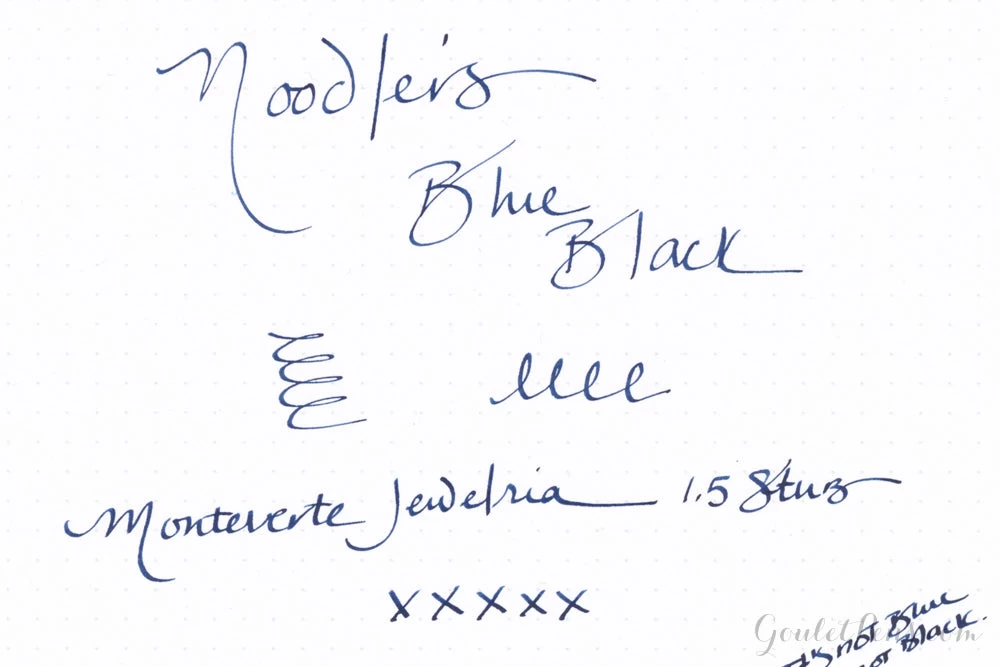 Noodler's
Blue
Black
Monteverte Jewelria 1.5 Stub
x x x x x
not Blue
not Black.
GouletPens.com